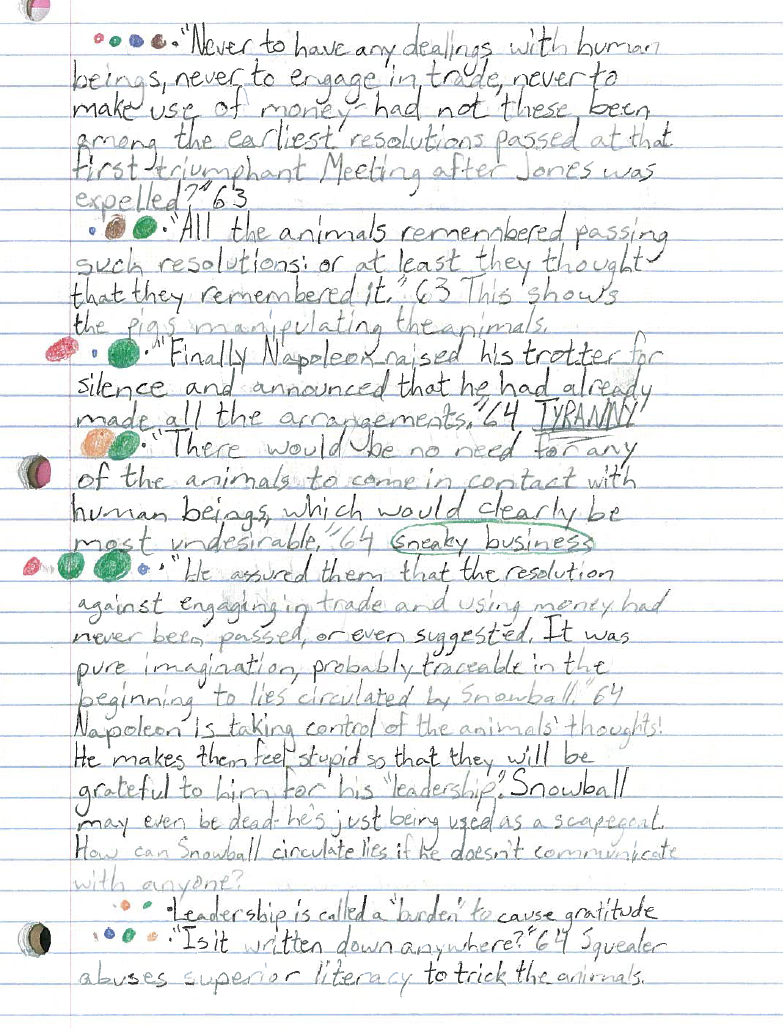 • "Never to have any dealings with human
beings, never to engage in trade, never to
make use of money- had not these been
among the earliest resolutions passed at that
first triumphant Meeting after Jones was
expelled?" 63
• "All the animals remembered passing
such resolutions: or at least they thought
that they remembered it." 63 This shows
the pigs manipulating the animals.
• "Finally Napoleon raised his trotter for
silence and announced that he had already
made all the arrangements." 64 TYRANNY
• "There would be no need for any
of the animals to come in contact with
human beings, which would clearly be
most undesirable." 64 sneaky business
• "He assured them that the resolution
against engaging in trade and using money had
never been passed, or even suggested. It was
pure imagination, probably traceable in the
beginning to lies circulated by Snowball." 64
Napoleon is taking control of the animals' thoughts!
He makes them feel stupid so that they will be
grateful to him for his "leadership". Snowball
may even be dead- he's just being used as a scapegoat.
How can Snowball circulate lies if he doesn't communicate
with anyone?
• Leadership is called a "burden" to cause gratitude
• "Is it written down anywhere?" 64 Squealer
abuses superior literacy to trick the animals.